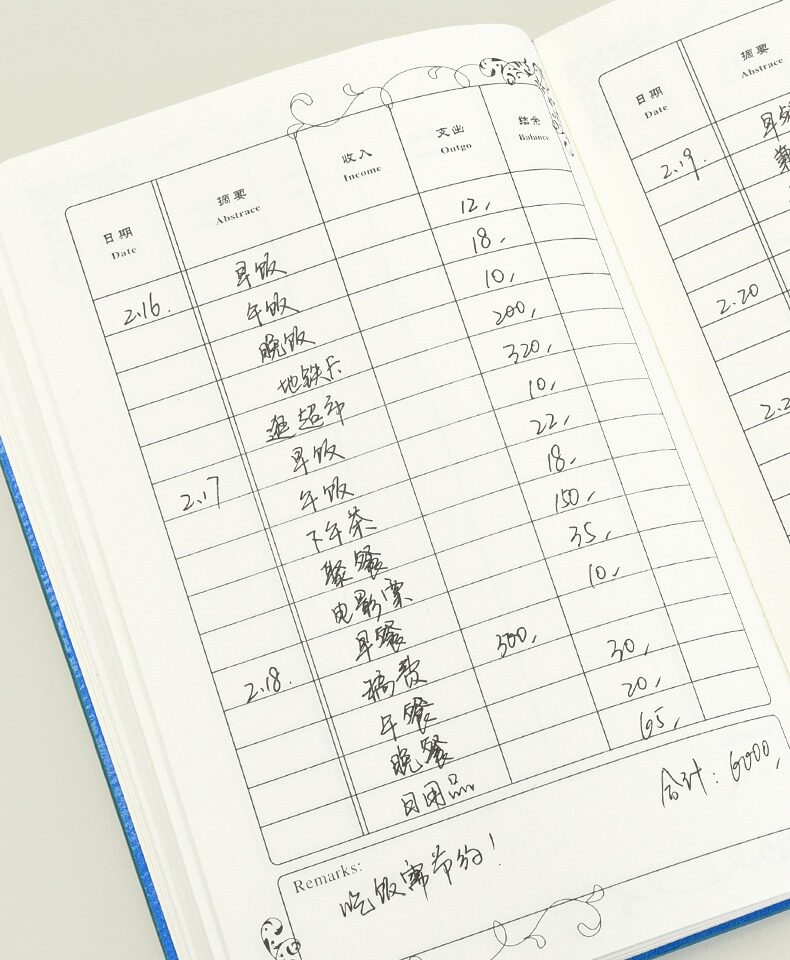 日期 摘要 收入 支出 结余
Date Abstrace Income Outgo Balance
2.16. 早饭 12,
午饭 18,
晚饭 10,
地铁卡 200,
逛超市 320,
2.17 早饭 10,
午饭 22,
下午茶 18,
聚餐 150,
电影票 35,
2.18. 早餐 10,
稿费 300,
午餐 30,
晚餐 20,
日用品 65,
合计：6000,
Remarks:
吃饭需节约！
日期 摘要
Date Abstrace
2.19. 早
2.20
2.2